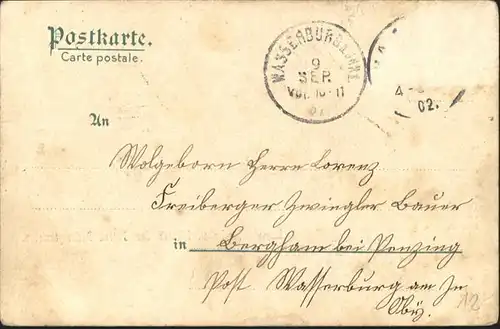 Postkarte.
Carte postale.
WASSERBURG A. INN
9
SEP.
VOR. 10-11
02.
An
Wolgeborn Herrn Lorenz
Freiberger Zwingler Bauer
in Bergham bei Penzing
Post Wasserburg am In
Oby.
12